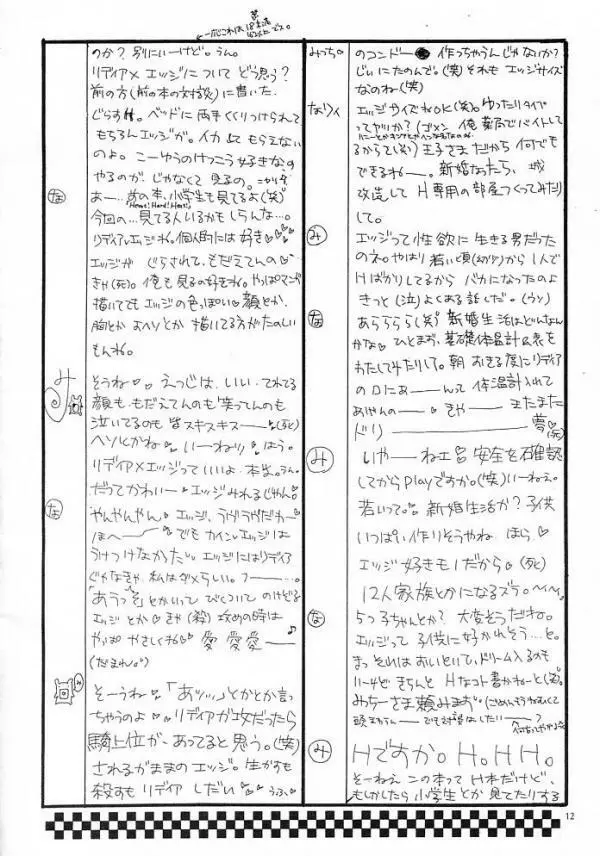 一応これは
のか？別にいーけど。うん。
リディア×エッジについて どう思う？
前の方(前の本の対談)に書いた
ぐらす。ベッドに 両手くくりつけられて
もちろんエッジが。イカしてもらえない
のよ。こーゆうのけっこう好きなの
やるのが、じゃなくて 見るの。
な
あー…前の本、小学生も見てるよ(笑)
Hard! Hard! Hard!
今回の…見てる人いるかもしらんな…。
リディア×エッジね。個人的には好き♡♡♡
エッジが ぐらされて、もだえてんの
きゃ(死)。俺も見るの好きね。やっぱマンガ
描いてても エッジの色っぽい♡顔とか、
胸とか おヘソとか 描いてる方がたのしい
もんね。
み
そうね♡♡えっじは、いい。てれてる
顔も、もだえてんのも 笑ってんのも
泣いてるのも 皆スキスキスー(死)
ヘソとかね♡いーねッッ♡ほう。
リディア×エッジっていいよ、本当。うん。
だってかわいーエッジみれるじゃん。
な
やんやんやん♡エッジ、
ほへ でも カイン×エッジは
うけつけなかったい。エッジにはリディア
じゃなきゃ、私はダメらしい。フー。
「あうっ」とかいって びくついて のけぞる
エッジ とか♡きゃ(殺) 攻めの時は
やっぱ やさしくね♡愛 愛 愛ー♪
(だまれ。)
み
そーうね♡「あッッ」とかとか言っ
ちゃうのよ♡リディアが攻だったら
騎上位が、あってると思う。(笑)
されるがままの エッジ。生かすも
殺すも リディア しだい♡♡うふ♡
みっち。
のコンドー● 作っちゃうんじゃないか？
じいにたのんで。(笑) それも エッジサイズ
なのね(笑)
なりィ
エッジサイズねOK(笑)。ゆったりタイプ
ってヤツか？(ゴメン 俺 薬局でバイトして
るからさ(笑)) 王子さま だから 何でも
できるねー。新婚なったら、城
改造して H専用の部屋つくってみたり
して。
み
エッジって 性欲に 生きる男だった
のネ。やはり 若い頃(幼少)から 1人で
Hばかりしてるから バカになったのよ
きっと(泣) よくある話しだ。(ウン)
な
あららら(笑) 新婚生活はどんなん
かな♡ひとまず、基礎体温計&表を
わたしてみたりして。朝 おきる度にリディア
の口にあーんって 体温計入れて
あげんのー♡きゃー またまた
ドリー 夢♡(死)
み
いやーねェ♡安全を確認
してからplayですか。(笑) いーねぇ。
若いって。♡新婚生活か？子供
いっぱい 作りそうやね ほら♡
エッジ 好きモノだから♡(死)
12人家族とかになるズラ。へへへ。
な
5つ子ちゃんとか？ 大変そうだねェ。
エッジって 子供に 好かれそう…と。
ま、それはおいといて、ドリーム入るのも
いーけど きちんと Hなコト書かねーと(笑)
みちーさま頼みます。
み
Hですか。H。HH。
そーねえ この本って H本だけど、
もしかしたら小学生とか 見てたりする
12